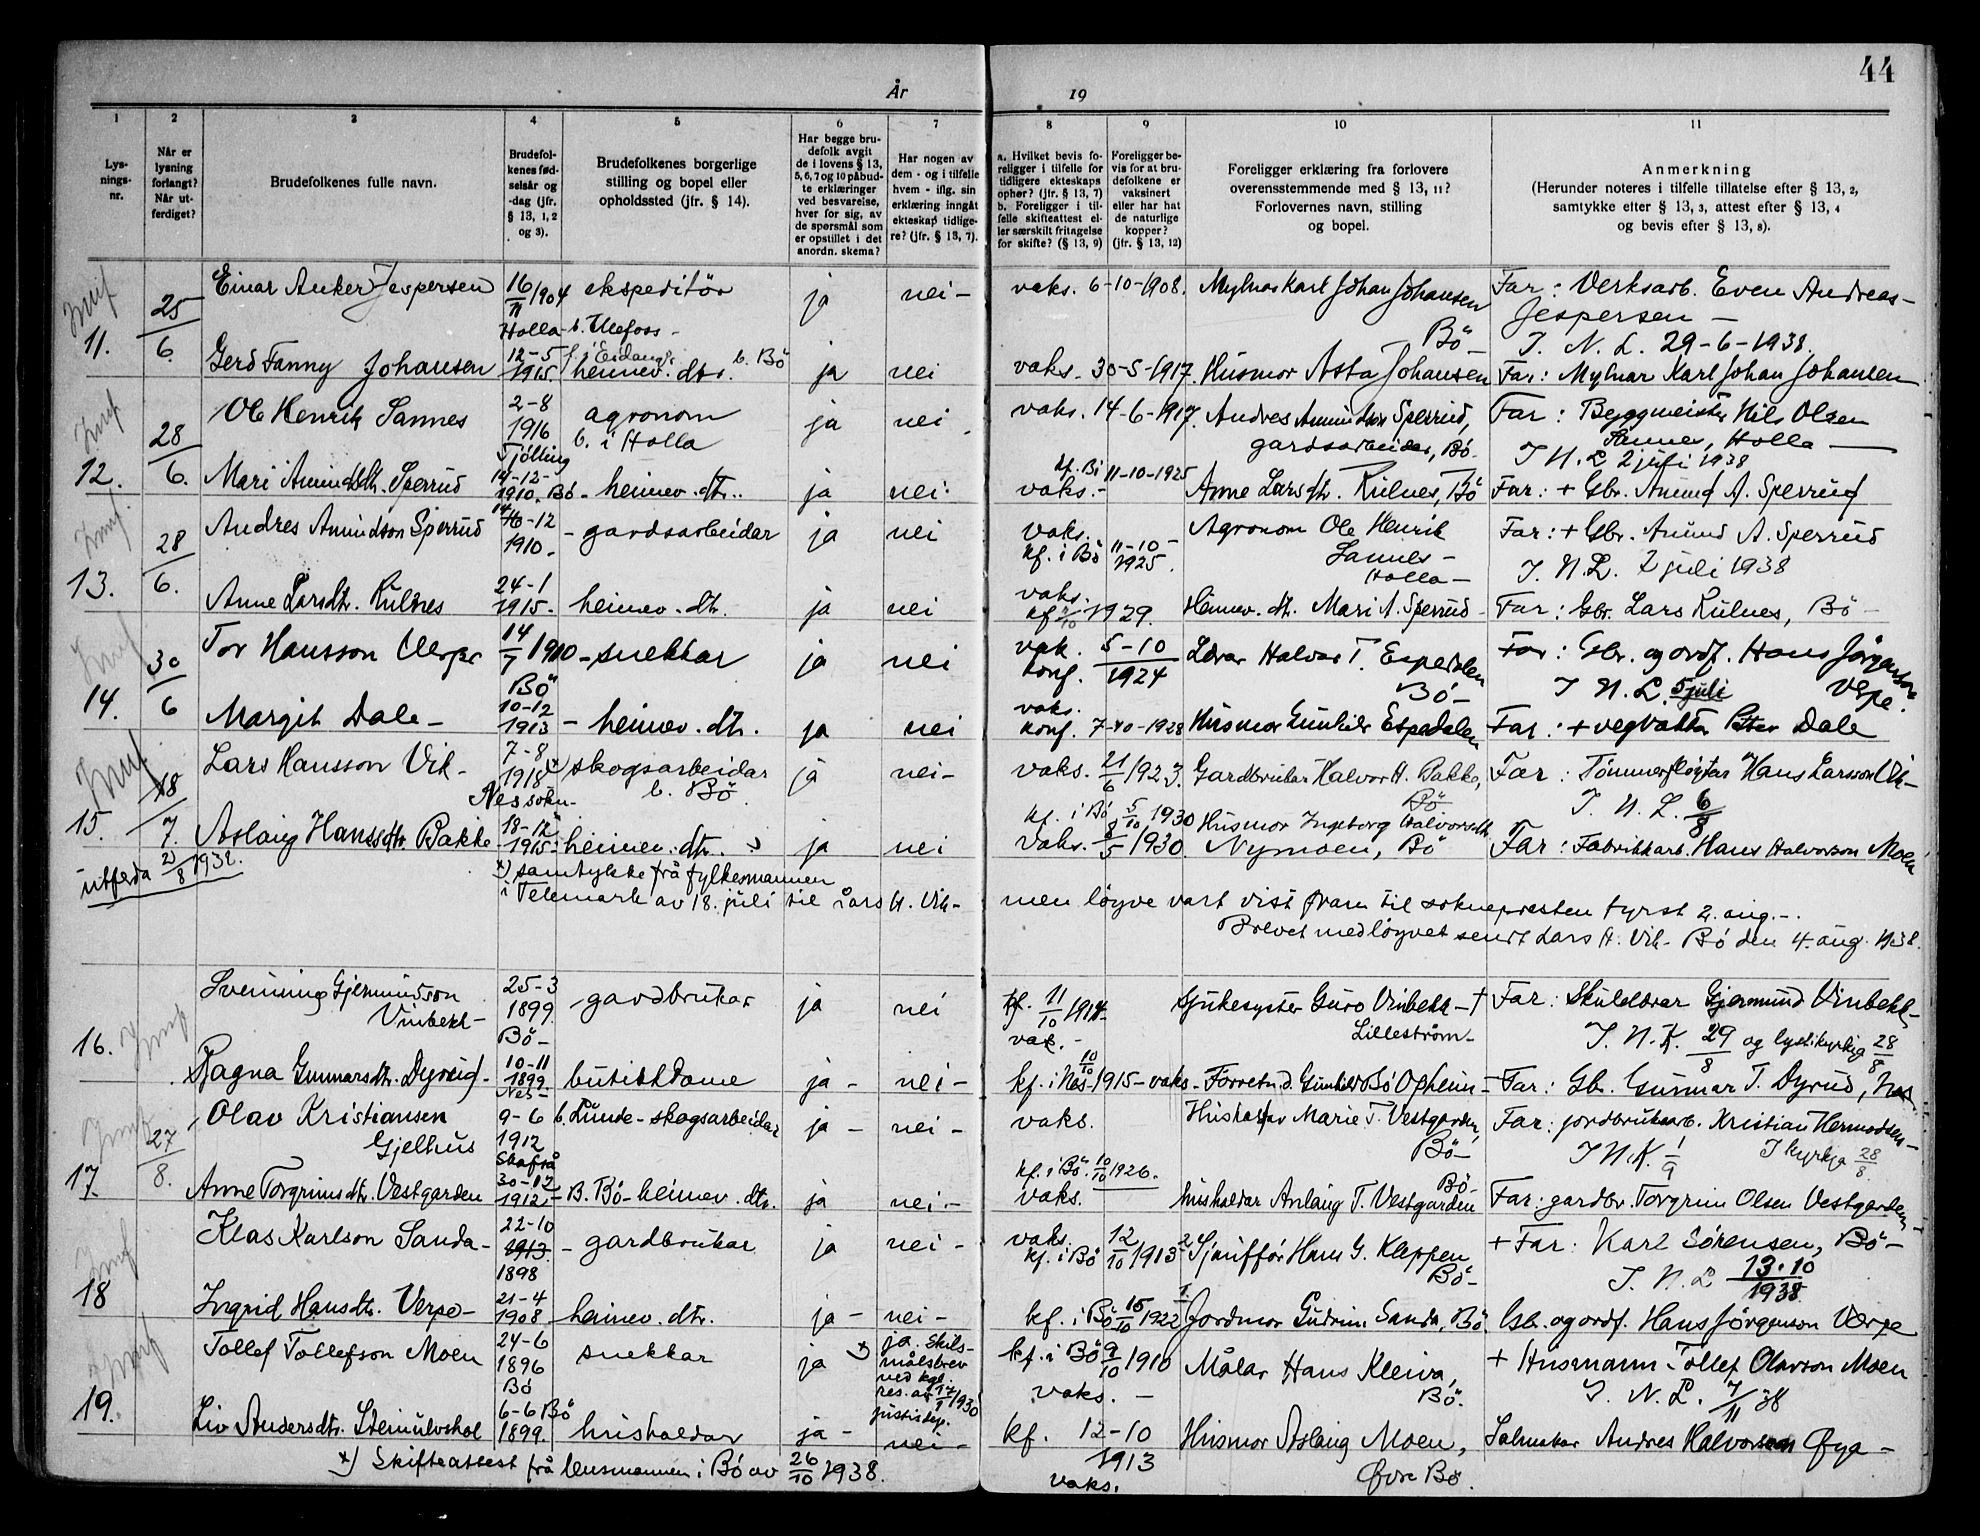 44
År
19
1
2
3
4
5
6
7
8
9
10
11
Lys-
nings-
nr.
Når er
lysning
forlangt?
Når ut-
ferdiget?
Brudefolkenes fulle navn.
Brudefol-
kenes fød-
selsår og
-dag (jfr.
§ 13, 1, 2
og 3).
Brudefolkenes borgerlige
stilling og bopel eller
opholdssted (jfr. § 14).
Har begge bru-
defolk avgit
de i lovens § 13,
5, 6, 7 og 10 påbud-
te erklæringer
ved besvarelse,
hver for sig, av
de spørsmål som
er opstillet i det
anordn. skema?
Har nogen av
dem - og i tilfelle
hvem - iflg. sin
erklæring inngått
ekteskap tidlige-
re? (jfr. § 13, 7).
a. Hvilket bevis fo-
religger i tilfelle for
tidligere ekteskaps
ophør? (jfr. § 13, 7)
b. Foreligger i til-
felle skifteattest el-
ler særskilt fritagelse
for skifte? (§ 13, 9)
Foreligger be-
vis for at bru-
defolkene er
vaksinert
eller har hat
de naturlige
kopper?
(jfr. § 13, 12)
Foreligger erklæring fra forlovere
overensstemmende med § 13, 11?
Forlovernes navn, stilling
og bopel.
Anmerkning
(Herunder noteres i tilfelle tillatelse efter § 13, 2,
samtykke efter § 13, 3, attest efter § 13, 4
og bevis efter § 13, 8).
11. 25/6. Einar Anker Jespersen 16/11 1904 ekspeditör ja nei - vaks. 6-10-1908. Mylnar Karl Johan Johansen Far: Verksarb. Even Andreas
Holla b. Ulefoss - Bö - Jespersen -
J. N. L. 29-6-1938.
Gerd Fanny Johansen 12-5 1915. f. i Eidanger b. Bö heimev. dtr. ja nei vaks. 30-5-1917. Husmor Asta Johansen Far: Mylnar Karl Johan Johansen
12. 28/6. Ole Henrik Sannes 2-8 1916 agronom ja nei vaks. 14-6-1917. Andres Amundson Sperrud, Far: Byggmeister Nils Olsen
Tjölling b. i Holla gardsarbeidar, Bö. Sannes, Holla
J N. L 2 juli 1938
Mari Amundsdtr. Sperrud 14-12- 1910. Bö - heimev. dtr. ja nei. kf. Bö 11-10-1925 vaks. - Anne Larsdtr. Kulnes, Bö Far: + Gbr. Amund A. Sperrud
13. 28/6. Andres Amundson Sperrud 14-12 1910. - gardsarbeidar ja nei vaks. - kf. i Bö 11-10-1925. Agronom Ole Henrik Far: + Gbr. Amund A. Sperrud
Sannes - Holla - J. N. L. 2 juli 1938
Anne Larsdtr. Kulnes 24-1 1915. heimev. dtr. ja nei vaks. kf 1929. Heimev. dtr. Mari A. Sperrud - Far: Gbr. Lars Kulnes, Bö -
14. 30/6 Tor Hansson Verpe 14/7 1910 - snekkar ja nei vak. konf. 5-10 1924 Lærar Halvor T. Espedalen Far: Gbr. og ordf. Hans Jörgenson
Bö Bö - J N. L. 5 juli Verpe.
Margit Dale - 10-12 1913 - heimev. dtr. ja nei vaks. konf. 7-10-1928 Husmor Gunhild Espedalen Far: + vegvaktar Peter Dale
15. 18/7. Lars Hansson Vik - 7-8 1918 skogsarbeidar ja nei - vaks. 21/6 1923. Gardbrukar Halvor H. Bakke, Far: Tömmerfløytar Hans Larsson Vik -
Nes sokn. b. Bö. Bö J. N. L. 6/8
Aslaug Hansdtr. Bakke 18-12 1915. heimev. dtr. ja nei kf. i Bö 5/10 1930 vaks. 8/5 1930. Husmor Ingeborg Halvorsdtr. Nymoen, Bö Far: Fabrikkarb. Hans Halvorson Moen
utferda 2/8 1938.
x) samtykke frå fylkesmannen
i Telemark av 18. juli til Lars H. Vik - men löyve vart vist fram til soknepresten fyrst 2. aug. -.
Brevet med löyvet sendt Lars H. Vik - Bö den 4. aug. 1938.
16. Svenning Gjermundson 25-3 1899 gardbrukar ja nei kf. 11/10 1914. Sjukesyster Guro Vinbekk - Far: Skulelærar Gjermund Vinbekk -
Vinbekk - Bö - vak. - Lilleström - J. N. K. 29/8 og lyst i kyrkja 28/8
Ragna Gunnarsdtr. Dyrud - 10-11 1899. Nes - butikkdame ja - nei - kf. i Nes 10/10 1915 - vaks - Forretnd. Gunhild Bö Opheim - Far: Gbr. Gunnar T. Dyrud, Nes.
17. 27/8. Olav Kristiansen 9-6 1912 b. Lunde - skogsarbeidar ja - nei - vaks. Hushaldar Marie T. Vestgarden, Far: jordbruksarb. Kristian Hermodsen -
Gjelhus Skafså Bö - J N. K. 1/9 I kyrkja 28/8
Anne Torgrimsdtr. Vestgarden 30-12 1912 - B. Bö - heimev. dtr. ja nei - kf. i Bö. 10/10 1926. vaks. hushaldar Aslaug T. Vestgarden Bö - Far: gardbr. Torgrim Olsen Vestgarden
18 Klas Karlson Sanda - 22-10 1913 1898 - gardbrukar ja nei - vaks. kf. i Bö 12/10 1913 Sjauffør Hans G. Kleppen + Far: Karl Sörensen, Bö -
Bö - J. N. L 13.10 1938.
Ingrid Hansdtr. Verpe - 21-4 1908 - heimev. dtr. ja - nei - kf. i Bö 15/10 1922 Jordmor Gudrun Sanda, Bö. Gbr. og ordf. Hans Jörgenson Verpe
19. Tollef Tollefson Moen 24-6 1896 Bö snekkar ja x) ja. Skils- kf. i Bö 9/10 1910 Målar Hans Kleiva, + Husmann Tollef Olavson Moen
målsbrev ved kgl. res. av 17/1 1930 justisdep. vaks. - Bö. J. N. L. 7/11 38
Liv Andersdtr. Steinulvskol 6-6 Bö 1899. hushaldar ja - nei - kf. 12-10 1913 Husmor Aslaug Moen, Salmakar Andres Halvorson Øya -
vaks. Øvre Bø.
x) Skifteattest frå lensmannen i Bö av 26/10 1938.